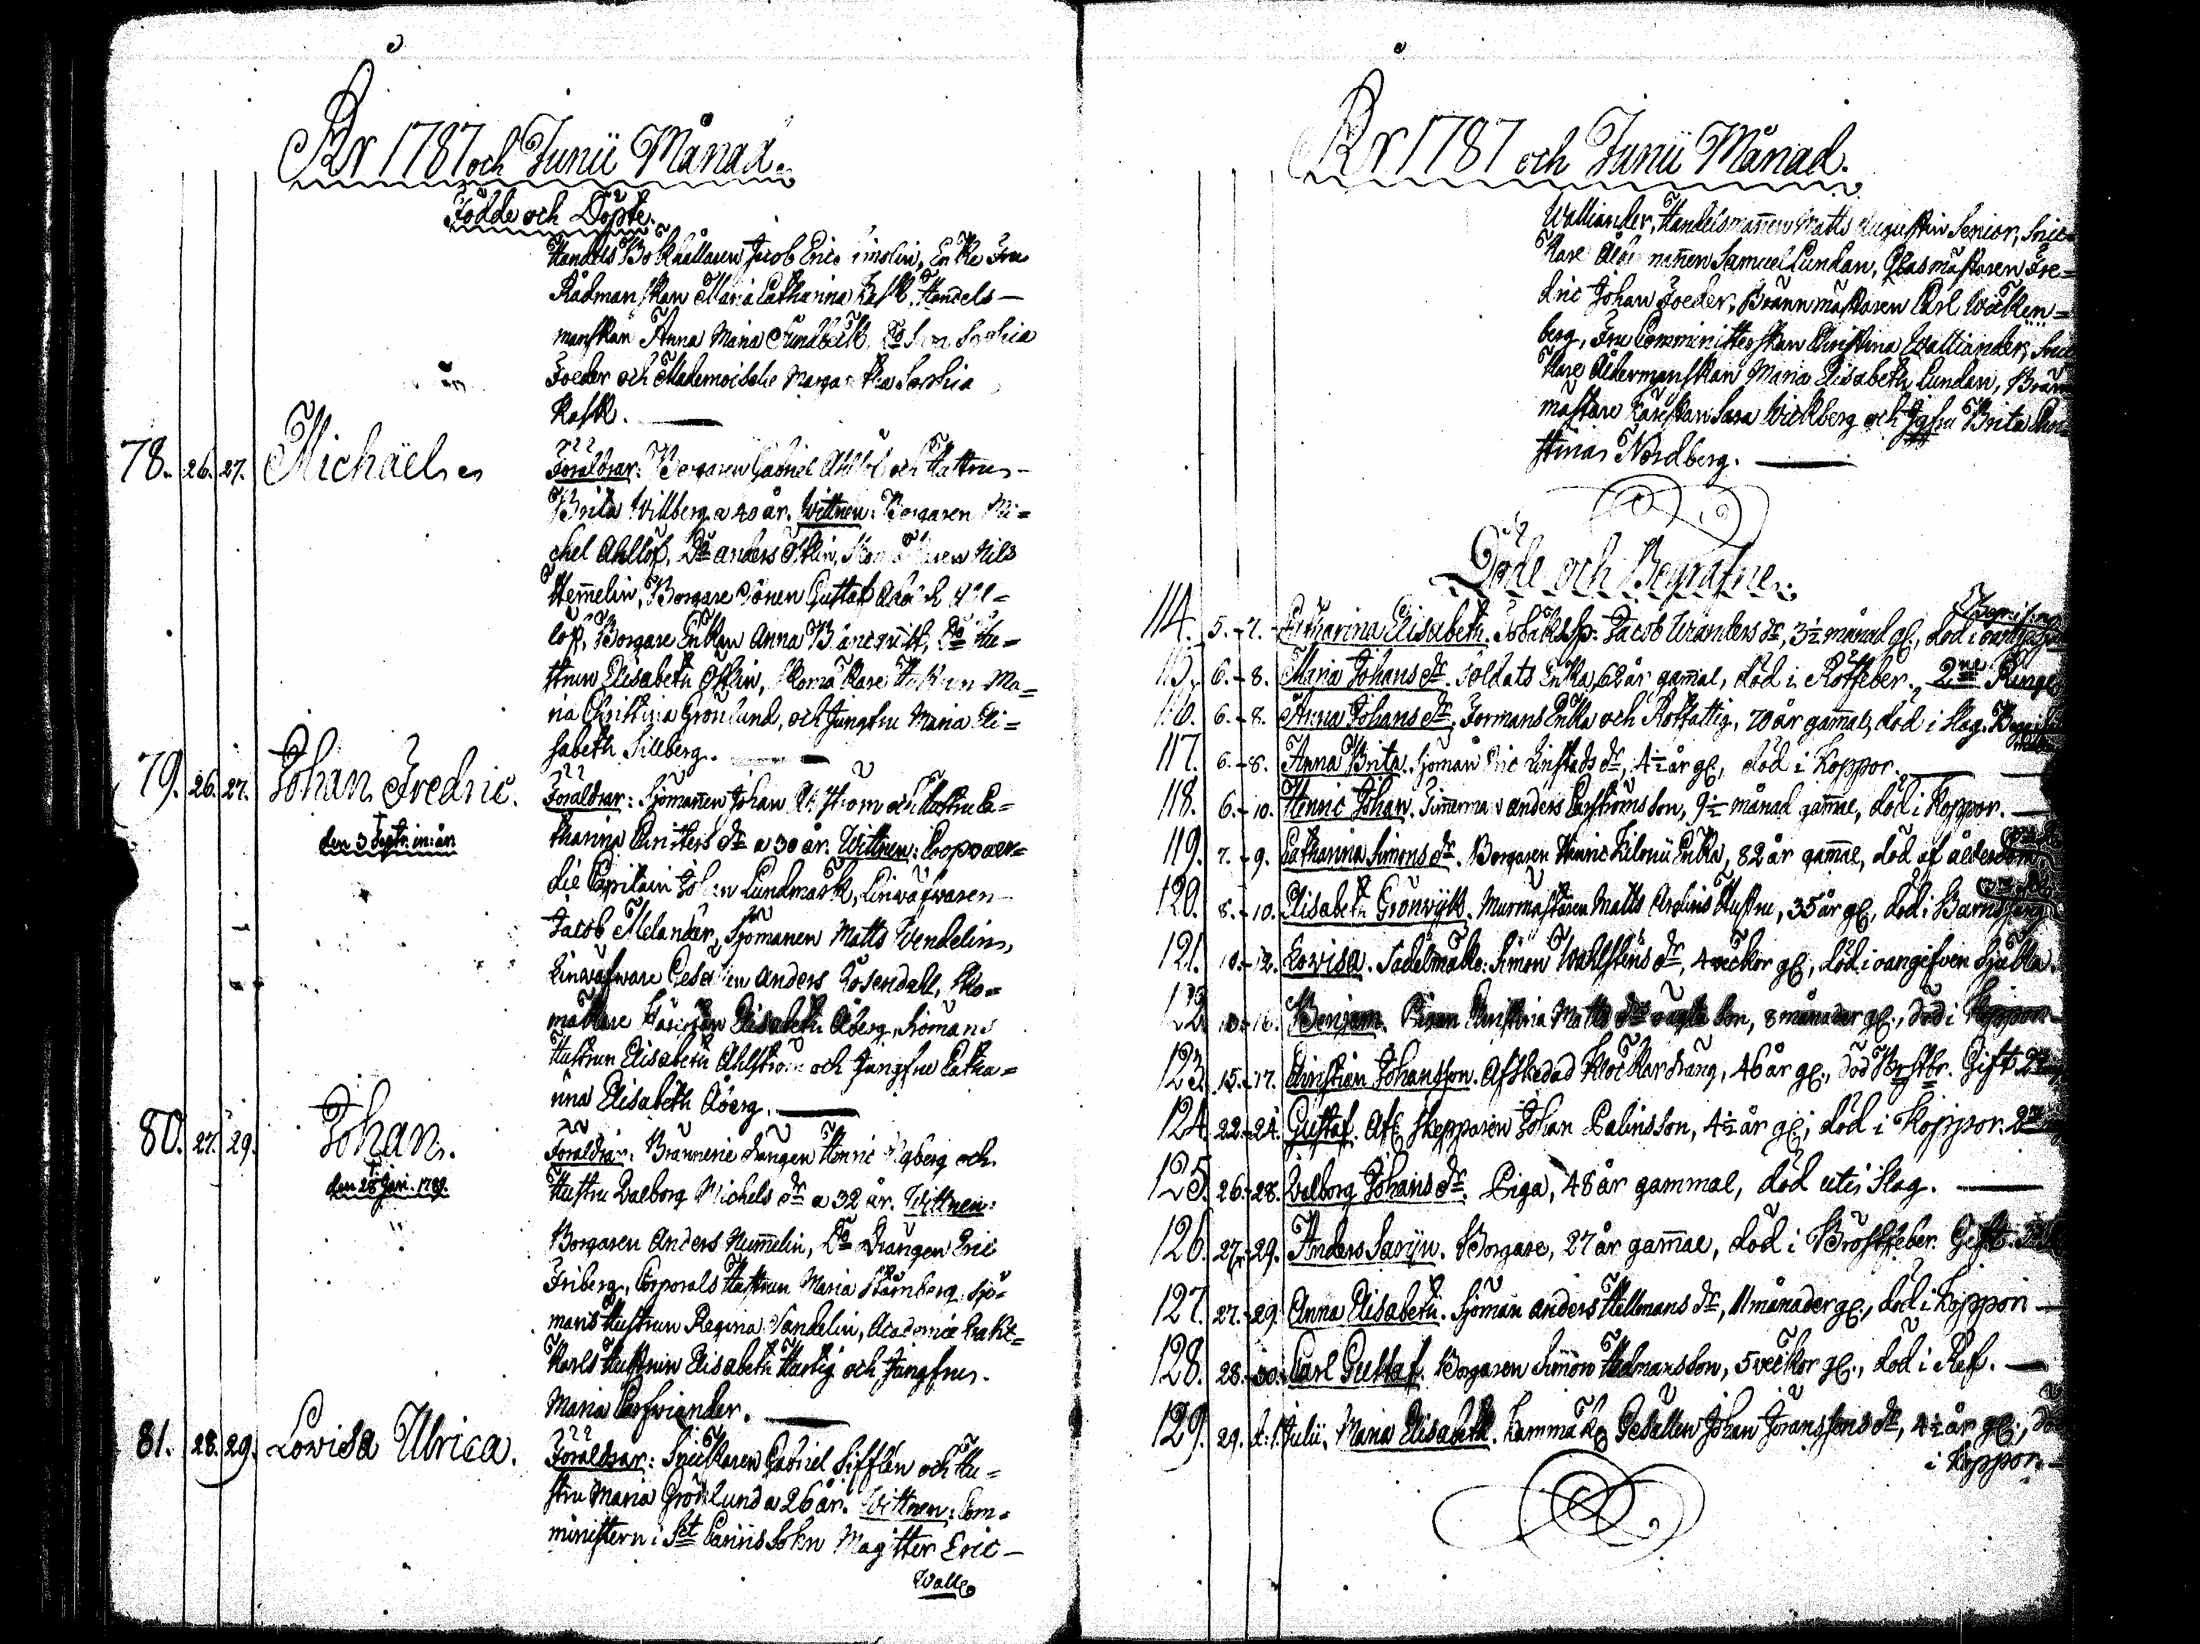 År 1787 och Junii Månad.
Födde och Döpte.
Handels Bokhållaren Jacob Eric Enke Fru
Rådmanskan Maria Catharina Rask, Handels-
manskan Anna Maria Sundbeck, Sophia
Foeder och Mademoiselle Margaretha Sophia
Rask.
78. 26. 27. Michäel.
Föräldrar: Borgaren Gabriel Ahllöf och Hustrun
Brita Willberg a 40 år. Wittnen: Borgaren Mi=
chel Ahllöf, Do Anders Öhlin, Nils
Hemmelin, Borgare Sonen Gustaf Ahl=
löf, Borgare Enkan Anna Do Hu=
strun Elisabeth Öhlin, Skomakare Hustrun Ma=
ria Christina Grönlund, och Jungfru Maria Eli=
sabeth Sillberg.
79. 26. 27. Johan Fredric.
den 3 Septr. in: år.
Föräldrar: Sjömannen Johan och Hustru Ca=
tharina Christers dr a 30 år. Wittnen: Coopvaer=
die Capitain Johan Lundmark, Linwäfwaren
Jacob Melander, Sjömannen Matts Wendelin,
Linwäfware Gesällen Anders Rosendall, Sko=
makare Elisabeth Åberg, Sjömans
Hustrun Elisabeth Ahlström och Jungfru Catha=
rina Elisabeth Åberg.
80. 27. 29. Johan.
den 28 Jan. 1789.
Föräldrar: Brännerie Drängen Henric och
Hustru Walborg Michels dr a 32 år. Wittnen:
Borgaren Anders Hummelin, Do Drängen Eric
Friberg, Corporals Hustrun Maria Stårnberg, Sjö=
mans Hustrun Regina Sandelin, Academiæ
Karls Hustrun Elisabeth Hartig och Jungfru
Maria
81. 28. 29. Lowisa Ulrica.
Föräldrar: Snickaren Gabriel Sifflén och Hu=
stru Maria Grönlund a 26 år. Wittnen: Com=
ministern i Sct Carins Sokn Magister Eric
Wall
År 1787 och Junii Månad.
Walliander, Handelsmannen Matts Augustin Senior, Snic=
kare Ålder mannen Samuel Lundan, Glasmästaren Fre=
dric Johan Foeder, Brännmästaren Carl Wicken=
berg, Fru Comministerskan Christina Walliander, Snic
kare Åldermanskan Maria Elisabeth Lundan, Bränn
mästare Käreskan Sara Wickberg och Jgfru Brita Chri
stina Nordberg.
Döde och Begrafne.
114. 5. - 7. Catharina Elisabeth. Tobaksp: Jacob Wranders dr, 3½ månad gl., död i
115. 6. - 8. Maria Johans dr. Soldats Enka, 62 år gammal, död i Rötfeber. 2ne
116. 6. - 8. Anna Johans dr. Formans Enka och Rotfattig, 70 år gammal, död i Slag.
117. 6. - 8. Anna Brita. Sjöman Eric Linstads dr, 4½ år gl., död i Koppor.
118. 6. - 10. Henric Johan. Timmerman Anders Carlströms Son, 9½ månad gammal, död i Koppor.
119. 7. - 9. Catharina Simons dr. Borgaren Henric Kilonii Enka, 82 år gammal, död af ålderdom
120. 8. - 10. Elisabeth Grönwijk. Murmästaren Matts Arelins Hustru, 35 år gl., död i Barnsäng
121. 10. - 12. Lowisa. Sadelmak: Simon Wahlstens dr, 4 veckor gl., död i oangifven Sjukla.
122. 10. - 16. Benjam. Pigan Christina Matts drs oägta Son, 8 månader gl., död i Koppor
123. 15. - 17. Christian Johansson. Afskedad Klockar dräng, 46 år gl., död Brstbr. Gift 2
124. 22. - 24. Gustaf. Afl. Skepparen Johan Palins Son, 4½ år gl., död i Koppor.
125. 26. - 28. Walborg Johans dr. Piga, 48 år gammal, död uti Slag.
126. 27. - 29. Anders Sarijn. Borgare, 27 år gammal, död i Bröstfeber. Gift.
127. 27. - 29. Anna Elisabeth. Sjöman Anders Hellmans dr, 11 månader gl., död i Koppor
128. 28. - 30. Carl Gustaf. Borgaren Simon Hedmans Son, 5 veckor gl., död i Ref.
129. 29. d. 1. Julii. Maria Elisabeth. Kammak. Gesällen Johan Joranssons dr, 4½ år gl.,
i Koppor.